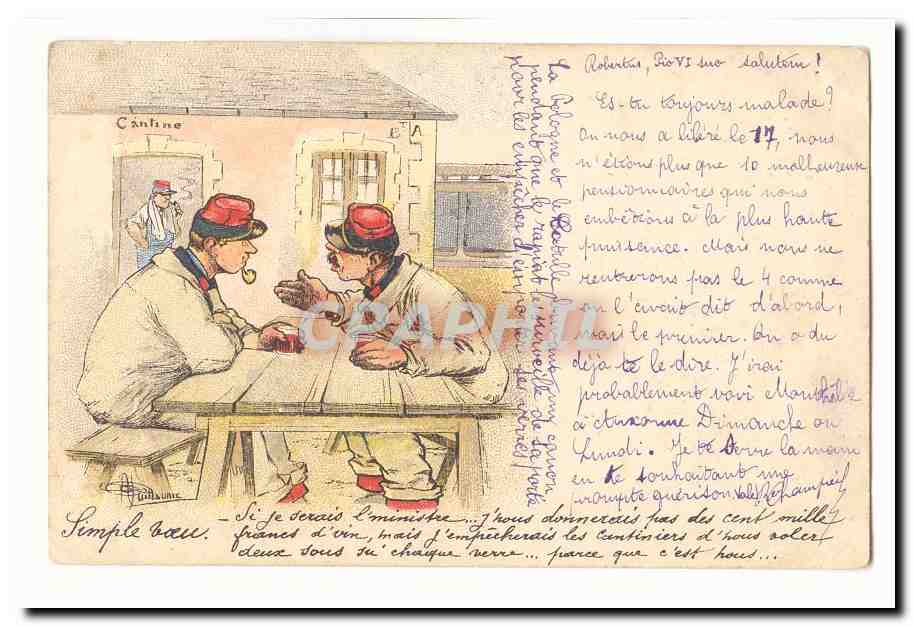 Cantine
Bt A
Robertus, Pio VI suo salutem!
Es-tu toujours malade?
On nous a libéré le 17, nous
n'étions plus que 10 malheureux
pensionnaires qui nous
embêtions à la plus haute
puissance. Mais nous ne
rentrerons pas le 4 comme
on l'avait dit d'abord,
mais le premier. On a du
déjà te le dire. J'irai
probablement voir
à Auxonne Dimanche ou
Lundi. Je te serre la main
en te souhaitant une
prompte guérison. Vale
La Pologne et le
pendant que le surveille de sa porte
pour les empêcher d'en
CPAPHIL
Guillaume
Simple vœu. - Si je serais l'ministre... j'nous donnerais pas des cent mille
francs d'vin, mais j'empêcherais les cantiniers d'nous voler
deux sous su' chaque verre... parce que c'est nous...